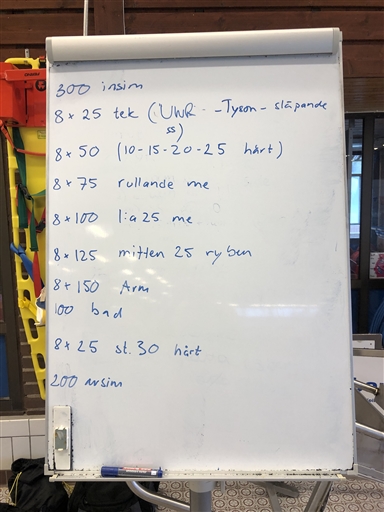 300 insim
8 × 25 tek (UWR - Tyson - släpande
ss)
8 × 50 (10-15-20-25 hårt)
8 × 75 rullande me
8 × 100 1:a 25 me
8 × 125 mitten 25 ryben
8 × 150 Arm
100 bad
8 × 25 st. 30 hårt
200 avsim